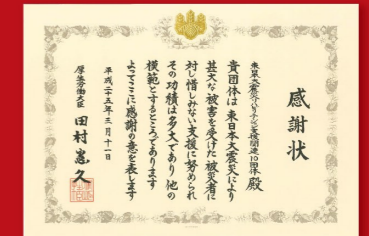 感謝状
東日本大震災リハビリテーション支援関連10団体 殿
貴団体は東日本大震災により
甚大な被害を受けた被災者に
対し惜しみない支援に努められ
その功績は多大であり他の
模範とするところであります
よってここに感謝の意を表します
平成二十五年三月十一日
厚生労働大臣 田村憲久